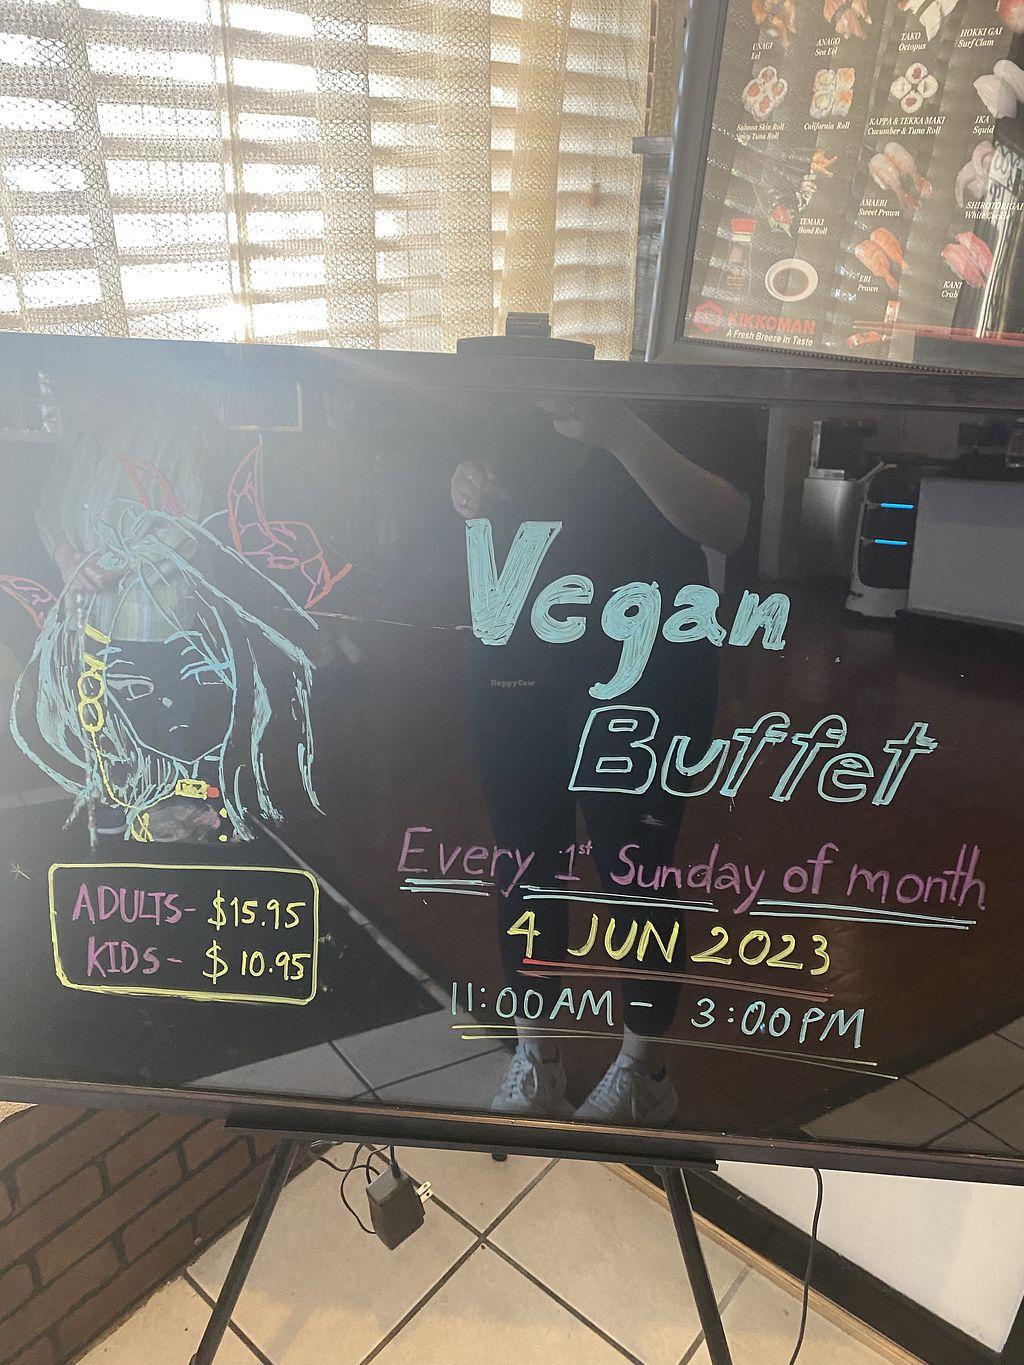 UNAGI
Eel
ANAGO
Sea Eel
TAKO
Octopus
HOKKI GAI
Surf Clam
Salmon Skin Roll
Spicy Tuna Roll
California Roll
KAPPA & TEKKA MAKI
Cucumber & Tuna Roll
IKA
Squid
TEMAKI
Hand Roll
AMAEBI
Sweet Prawn
EBI
Prawn
KANI
Crab
KIKKOMAN
A Fresh Breeze in Taste
Vegan
HappyCow
Buffet
Every 1st Sunday of month
4 JUN 2023
11:00AM - 3:00PM
ADULTS- $15.95
KIDS- $10.95